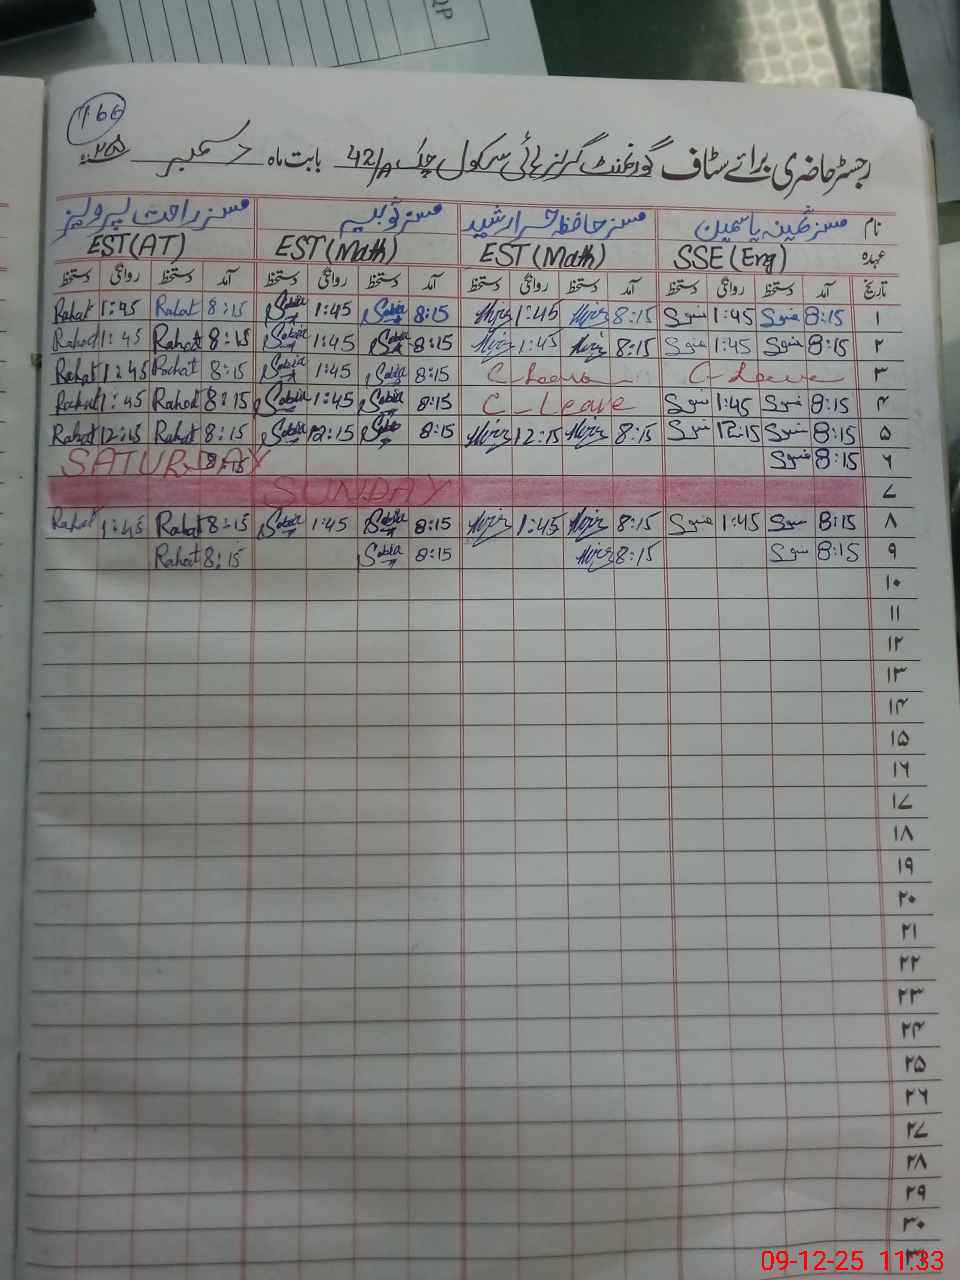 QP
166
رجسٹر حاضری برائے سٹاف گورنمنٹ گرلز ہائی سکول چک 42/A بابت ماہ دسمبر ۲۰۲۵
نام مسز ثمینہ یاسمین مسز حافظہ حرا رشید مسز ثوبیہ مسز راحت پرویز
عہدہ SSE (Eng) EST (Math) EST (Math) EST (AT)
تاریخ آمد دستخط روانگی دستخط آمد دستخط روانگی دستخط آمد دستخط روانگی دستخط آمد دستخط روانگی دستخط
۱ 8:15 1:45 8:15 1:45 8:15 Sobia 1:45 Sobia 8:15 Rahat 1:45 Rahat
۲ 8:15 1:45 8:15 1:45 8:15 Sobia 1:45 Sobia 8:15 Rahat 1:45 Rahat
۳ C-Leave C-Leave 8:15 Sobia 1:45 Sobia 8:15 Rahat 1:45 Rahat
۴ 8:15 1:45 C-Leave 8:15 Sobia 1:45 Sobia 8:15 Rahat 1:45 Rahat
۵ 8:15 12:15 8:15 12:15 8:15 Sobia 12:15 Sobia 8:15 Rahat 12:15 Rahat
۶ 8:15 8:15 SATURDAY
۷ SUNDAY
۸ 8:15 1:45 8:15 1:45 8:15 Sobia 1:45 Sobia 8:15 Rahat 1:45 Rahat
۹ 8:15 8:15 8:15 Sobia 8:15 Rahat
۱۰
۱۱
۱۲
۱۳
۱۴
۱۵
۱۶
۱۷
۱۸
۱۹
۲۰
۲۱
۲۲
۲۳
۲۴
۲۵
۲۶
۲۷
۲۸
۲۹
۳۰
09-12-25 11:33